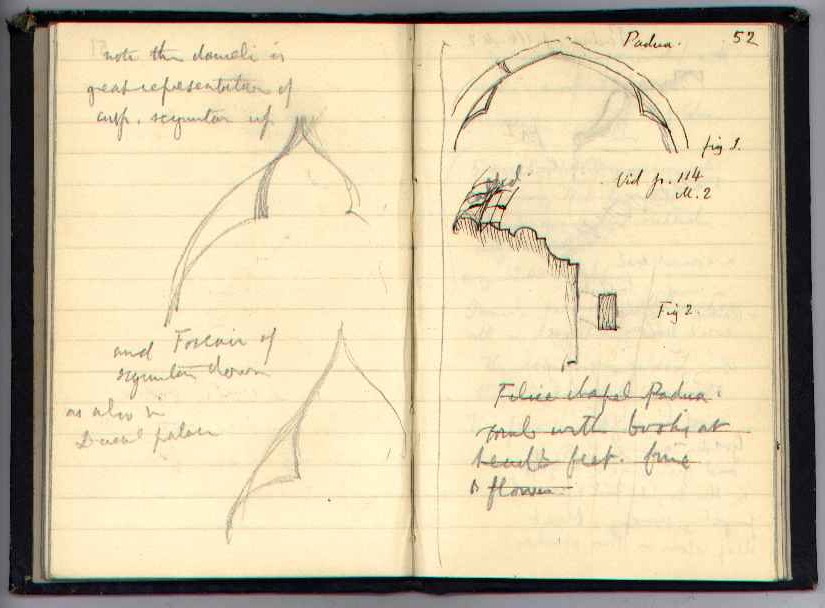 note the danieli is
great representation of
cusp. scymitar up
and Foscari of
scymitar down
as also in
Ducal palace
Padua. 52
fig 1.
Vid p. 114
M. 2
Fig 2.
Felice chapel Padua.
tomb with books at
head & feet. fine
flower.